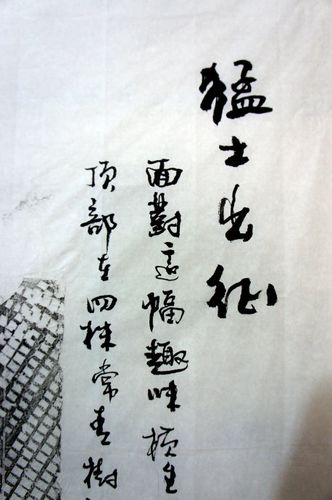 猛士出征
面對這幅趣味橫生
頂部左四株常青樹